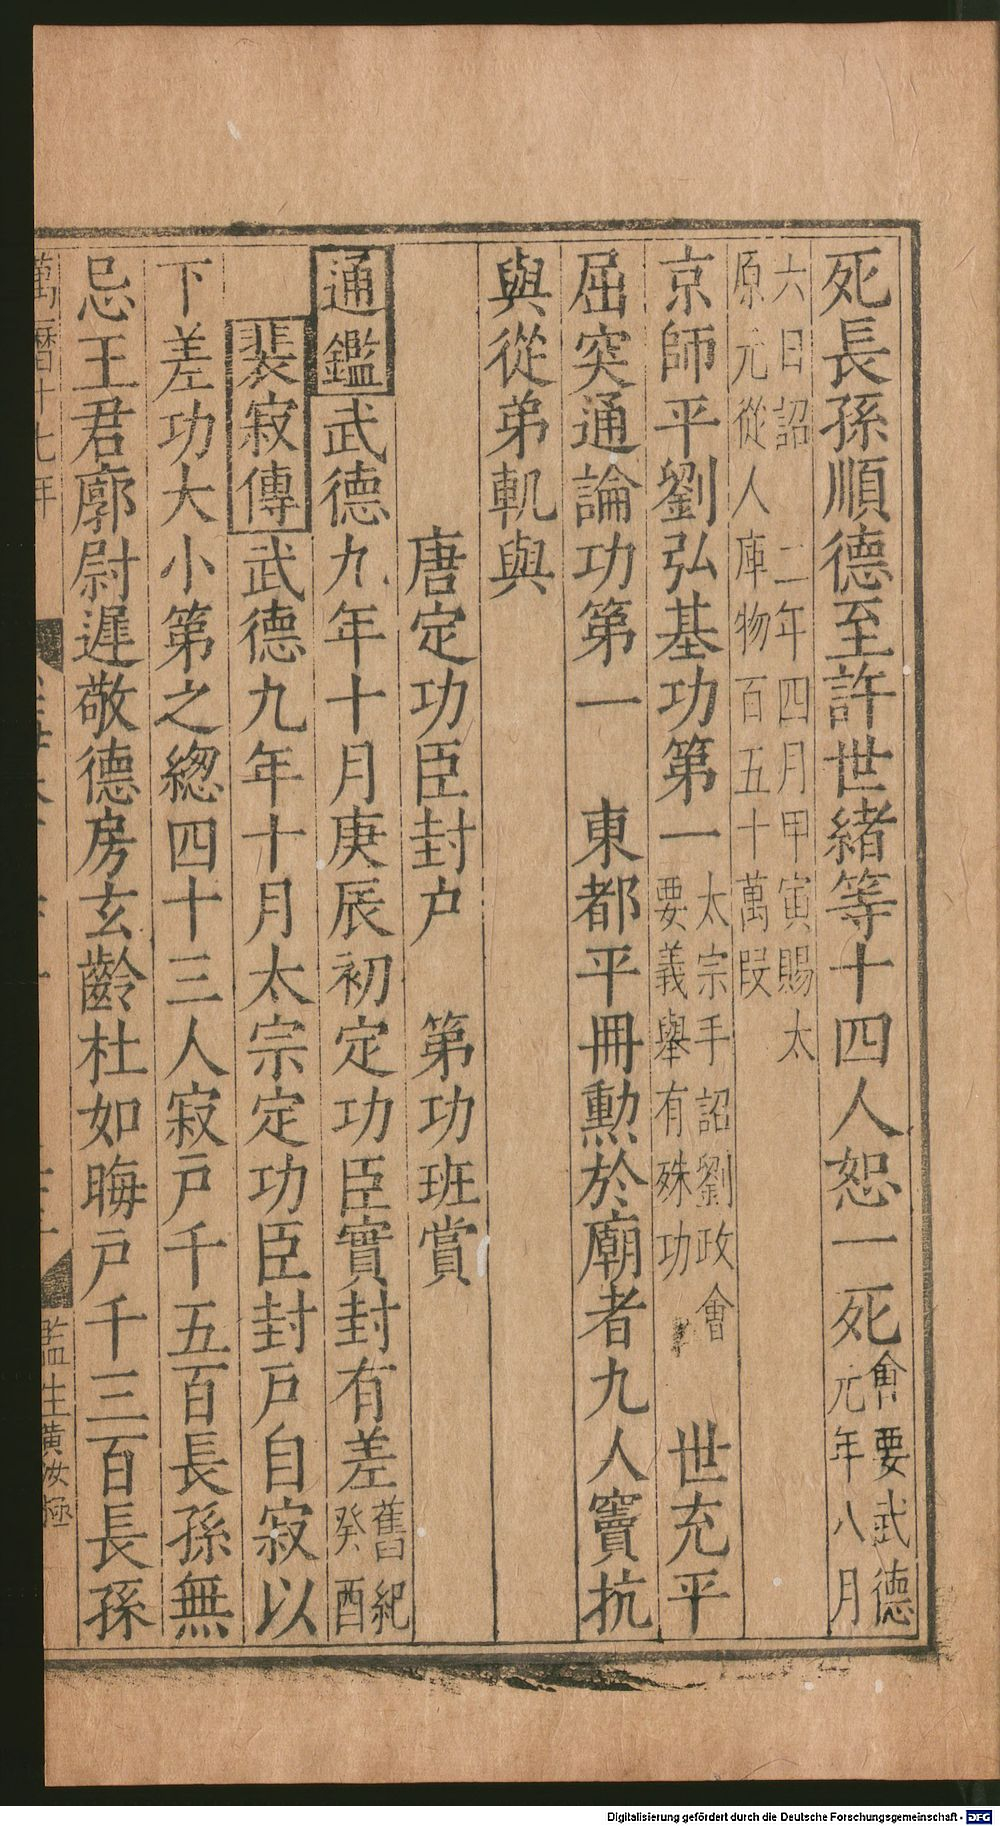 死長孫順德至許世緒等十四人恕一死會要武德元年八月
六日詔 二年四月甲寅賜太原元從人庫物百五十萬段
京師平劉弘基功第一太宗手詔劉政會要義舉有殊功 世充平
屈突通論功第一 東都平冊勲於廟者九人竇抗
與從弟軌與
唐定功臣封户 第功班賞
通鑑武德九年十月庚辰初定功臣實封有差舊紀癸酉
裴寂傳武德九年十月太宗定功臣封戸自寂以
下差功大小第之緫四十三人寂戸千五百長孫無
忌王君廓尉遲敬德房玄齡杜如晦戸千三百長孫
萬曆十七年
監生黃汝極
Digitalisierung gefördert durch die Deutsche Forschungsgemeinschaft - DFG